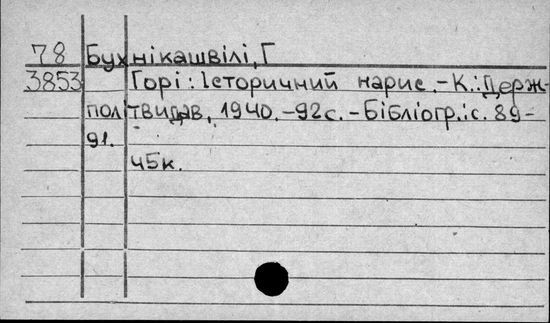 78 Бухнікашвілі, Г
3853 Горі: Історичний нарис. - К.: Держ-
політвидав, 1940. - 92с. - Бібліогр.: с. 89-
91.
45к.